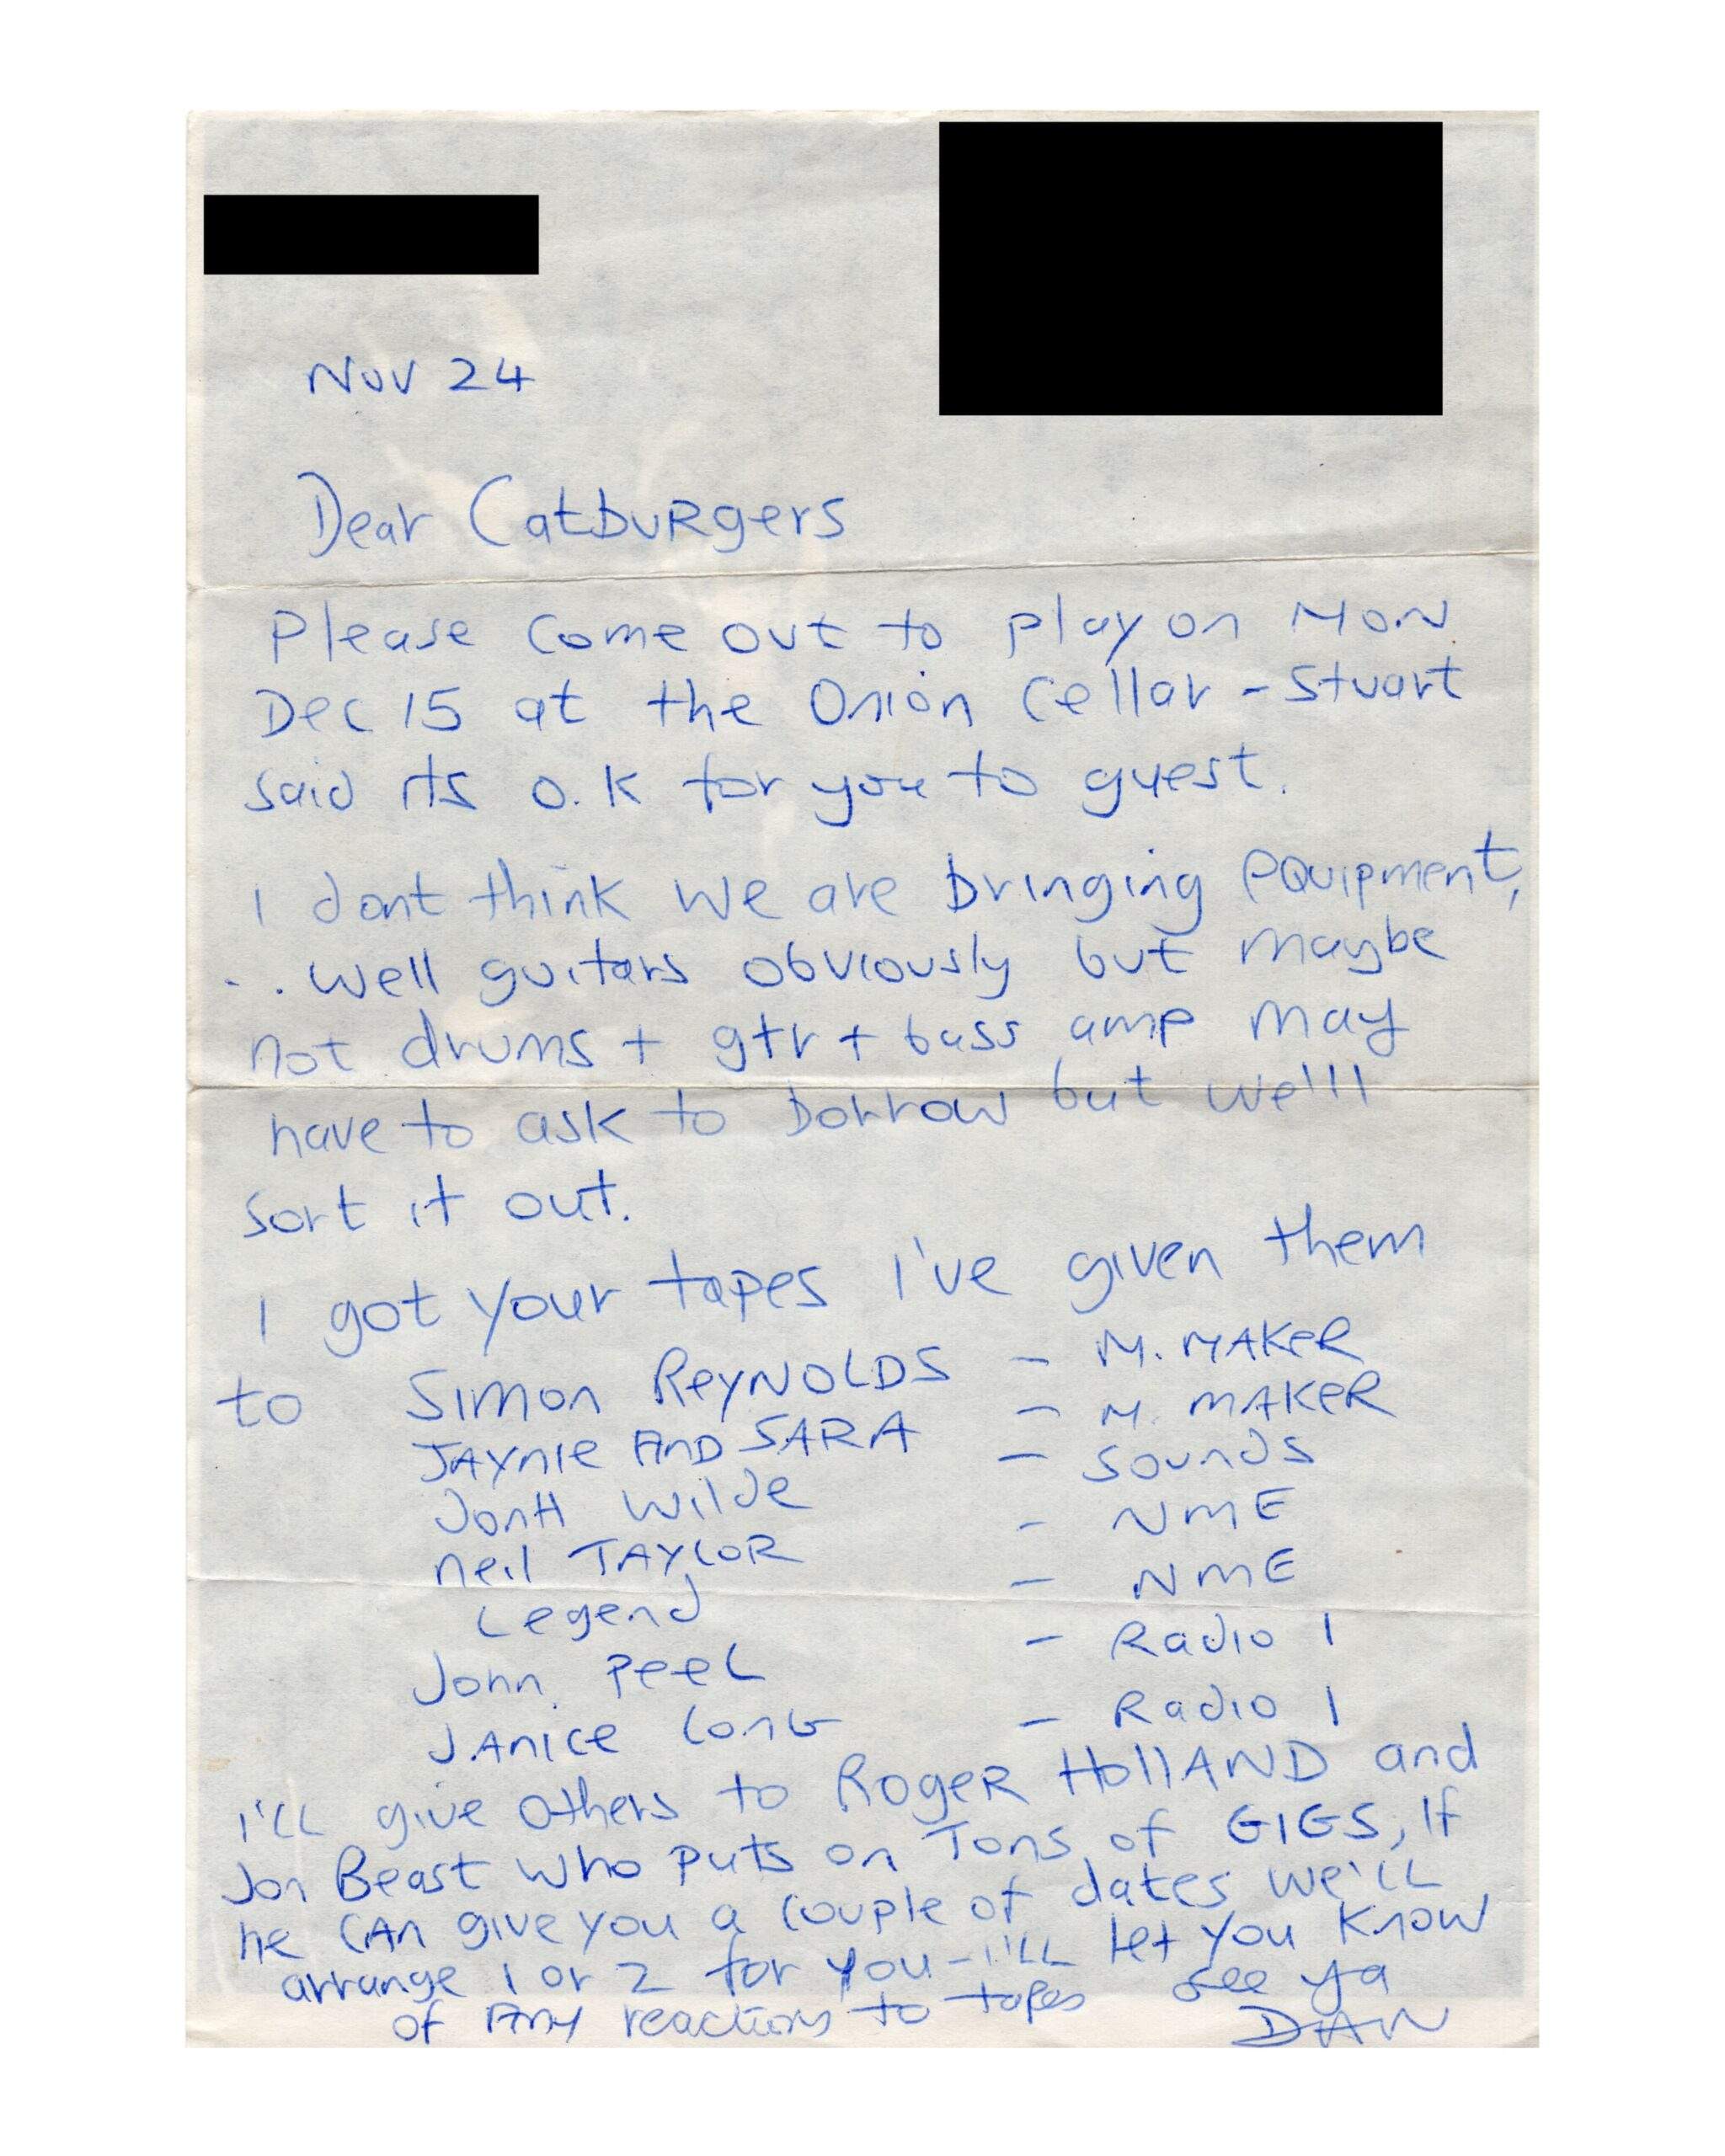 Nov 24
Dear Catburgers
Please come out to play on MON
Dec 15 at the Onion Cellar - Stuart
said its O.K for you to guest.
I dont think we are bringing equipment,
.. well guitars obviously but maybe
not drums + gtr + bass amp may
have to ask to borrow but we'll
sort it out.
I got your tapes I've given them
to SIMON REYNOLDS - M. MAKER
JAYNIE AND SARA - M. MAKER
JONH Wilde - Sounds
Neil TAYLOR - NME
Legend - NME
John Peel - Radio 1
JANICE LONG - Radio 1
I'll give others to Roger HollAND and
Jon Beast who puts on Tons of GIGS, If
he CAN give you a couple of dates we'll
arrange 1 or 2 for you - I'll let you know
of Any reactions to tapes see ya
DAN